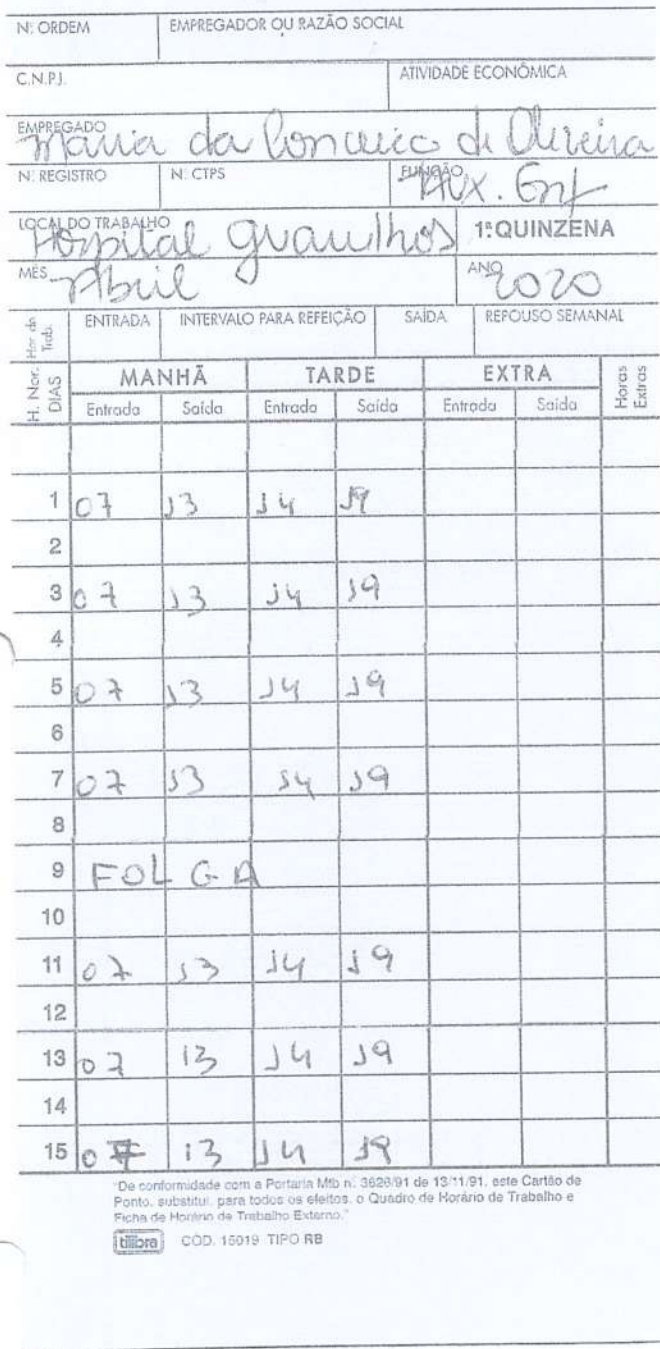 Nº ORDEM EMPREGADOR OU RAZÃO SOCIAL
C.N.P.J. ATIVIDADE ECONÔMICA
EMPREGADO
Maria da Conceico de Oliveira
Nº REGISTRO Nº CTPS FUNÇÃO
Aux. Enf
LOCAL DO TRABALHO
Hospital Guarulhos 1ª QUINZENA
MÊS Abril ANO 2020
Hor. de Trab. ENTRADA INTERVALO PARA REFEIÇÃO SAÍDA REPOUSO SEMANAL
H. Nor. DIAS MANHÃ TARDE EXTRA Horas Extras
Entrada Saída Entrada Saída Entrada Saída
1 07 13 14 19
2
3 07 13 14 19
4
5 07 13 14 19
6
7 07 13 14 19
8
9 FOLGA
10
11 07 13 14 19
12
13 07 13 14 19
14
15 07 13 14 19
"De conformidade com a Portaria Mtb n. 3626/91 de 13/11/91, este Cartão de
Ponto, substitui, para todos os efeitos, o Quadro de Horário de Trabalho e
Ficha de Horário de Trabalho Externo."
tilibra CÓD. 15019 TIPO RB